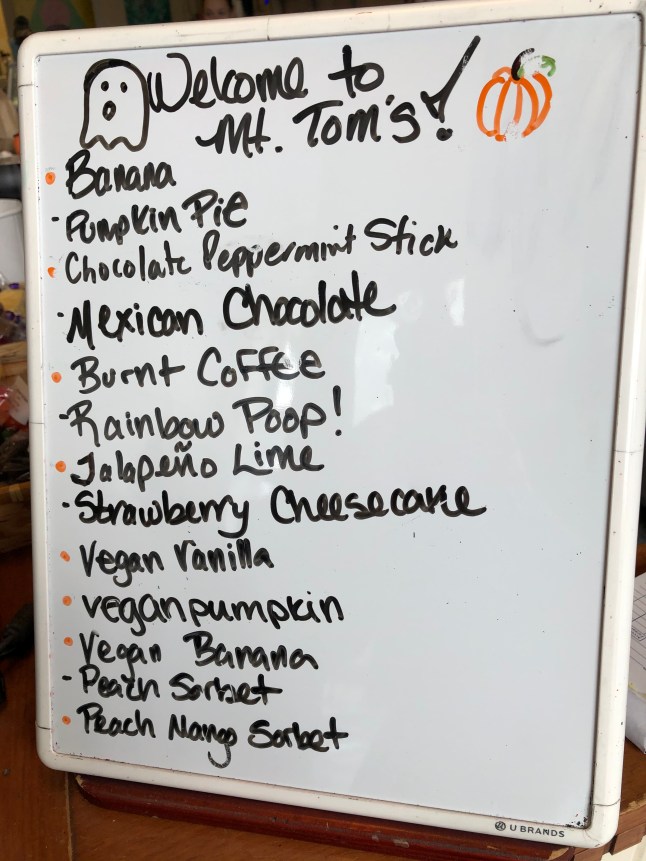 Welcome to
Mt. Tom's!
Banana
Pumpkin Pie
Chocolate Peppermint Stick
Mexican Chocolate
Burnt Coffee
Rainbow Poop!
Jalapeño Lime
Strawberry Cheesecake
Vegan Vanilla
vegan pumpkin
Vegan Banana
Peach Sorbet
Peach Mango Sorbet
U BRANDS